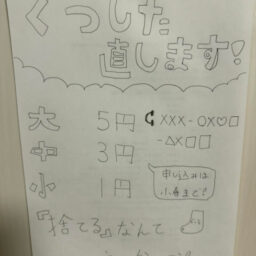 くつした
直します!
大 5円 XXX-○X♡□
-△X□□
中 3円
小 1円
申し込みは
『捨てる』なんて